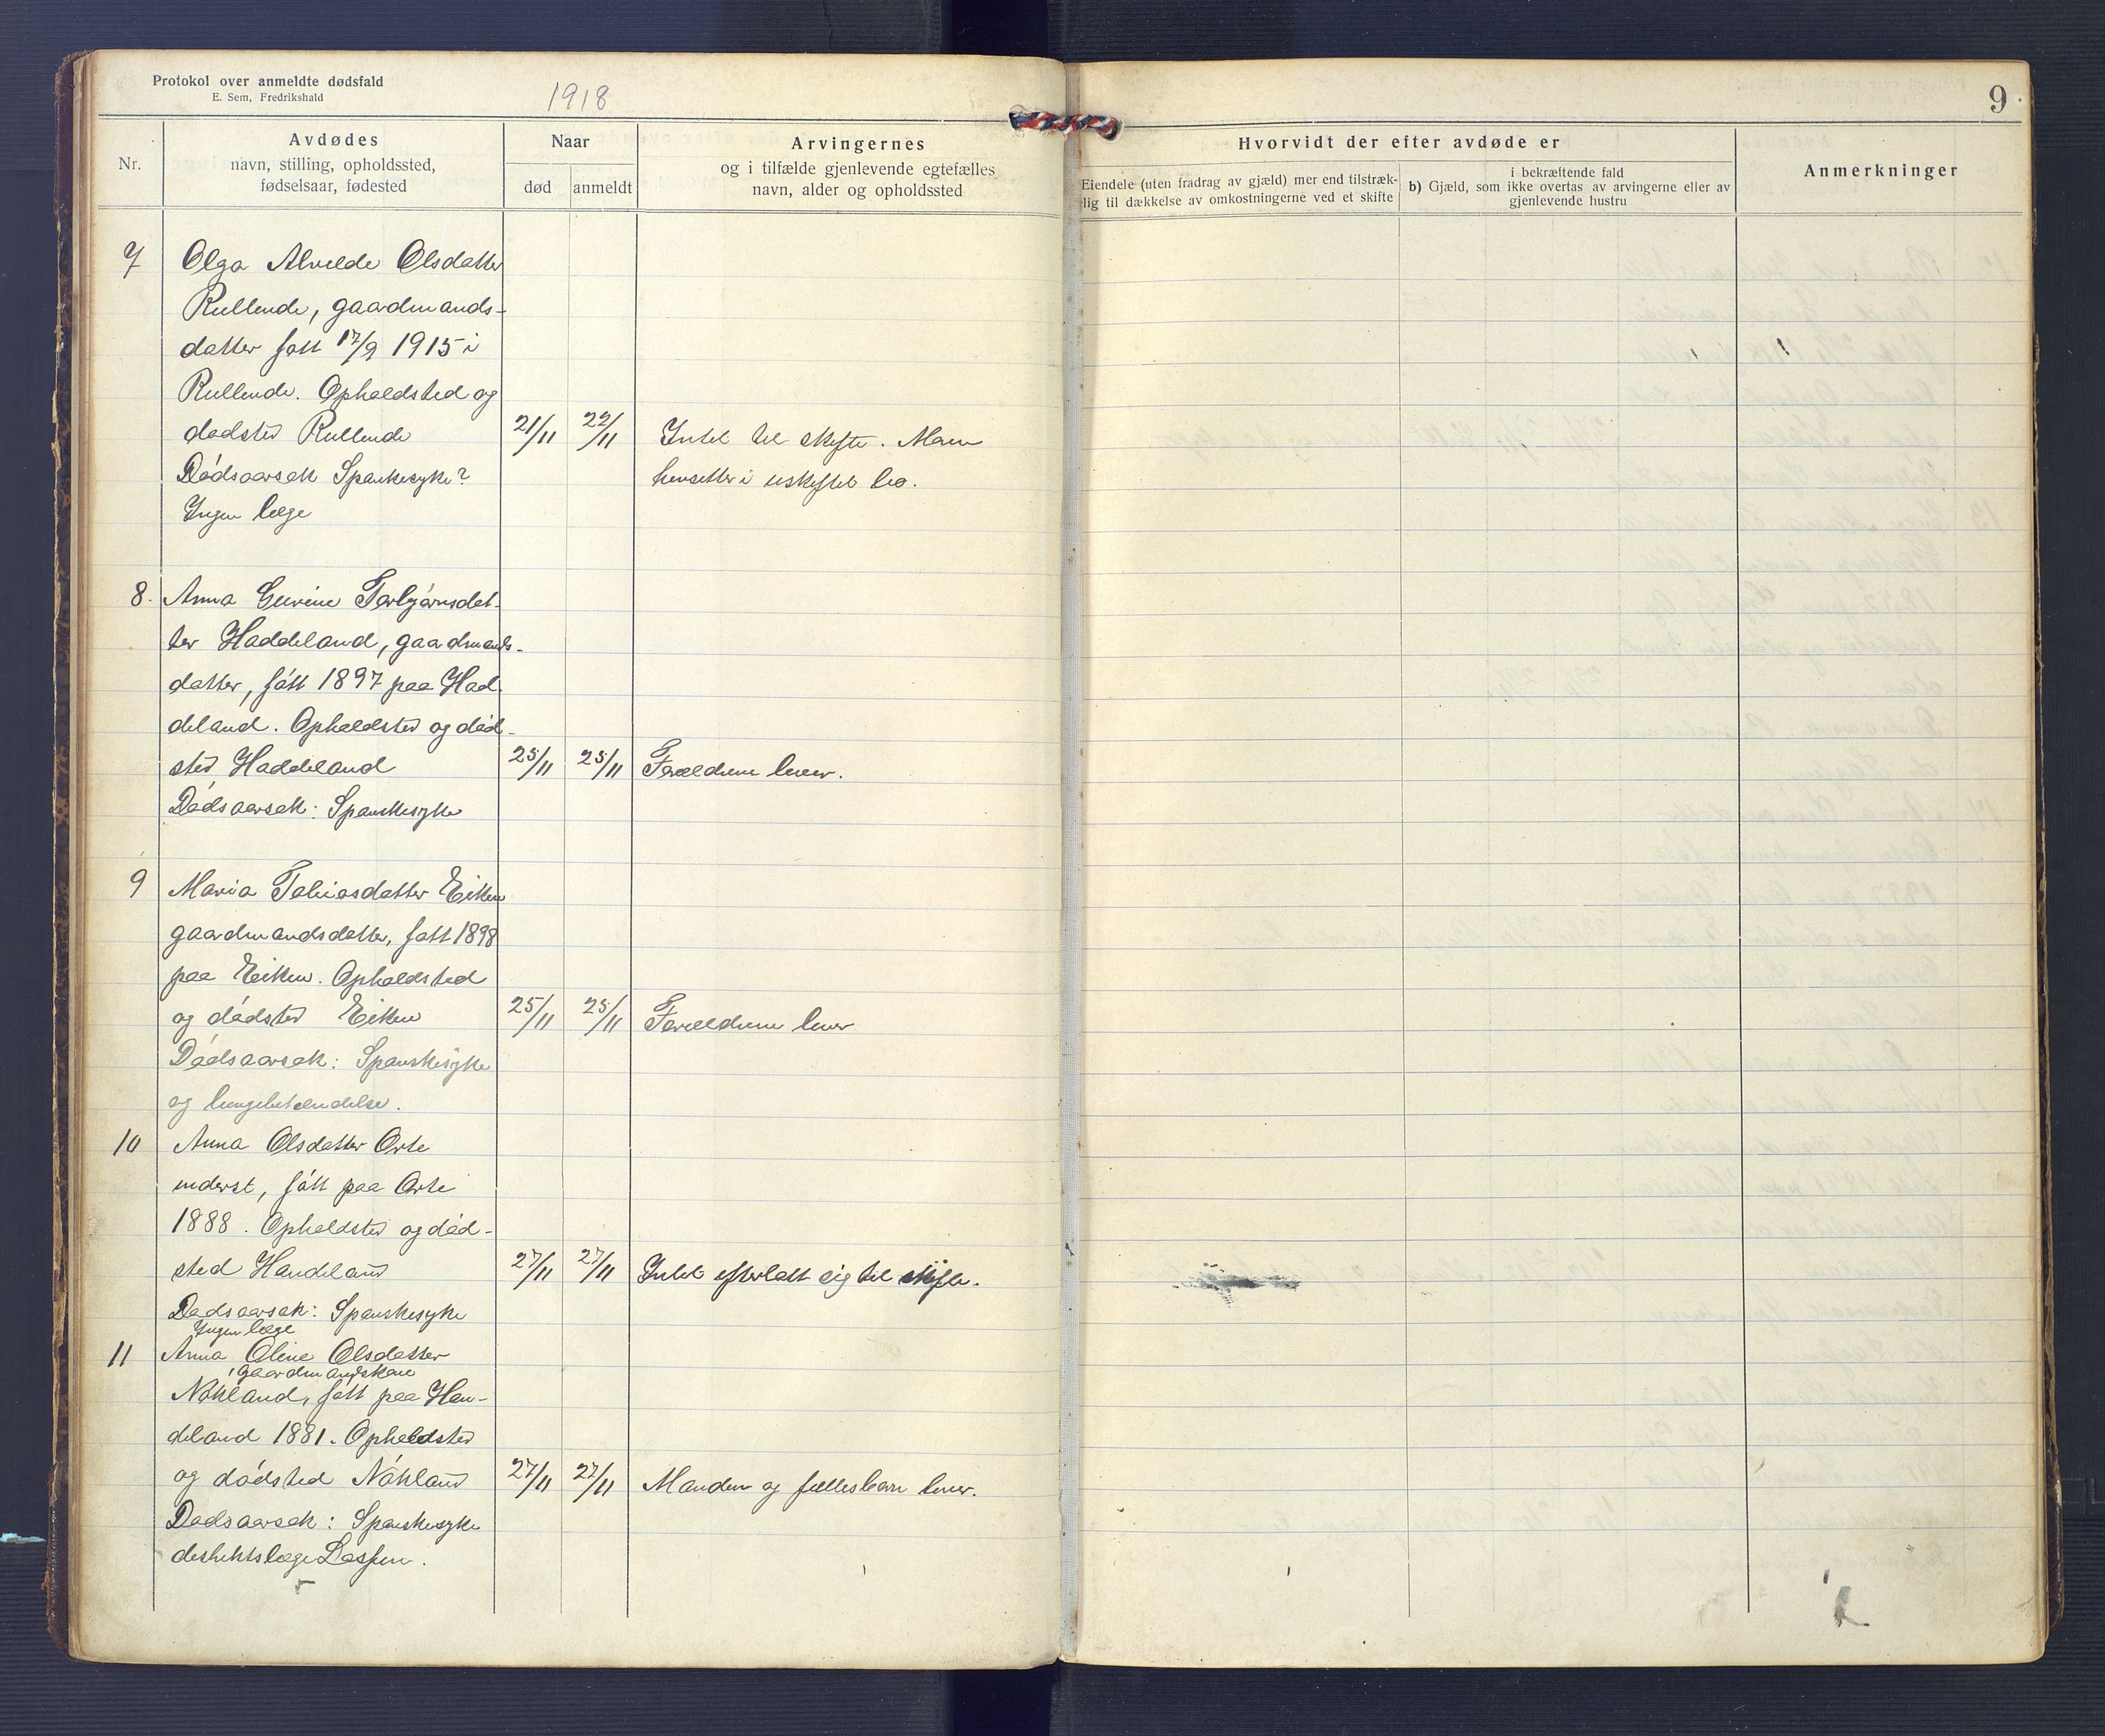 Protokol over anmeldte dødsfald
E. Sem, Fredrikshald
1918
9
Nr.
Avdødes
navn, stilling, opholdssted,
fødselsaar, fødested
Naar
død
anmeldt
Arvingernes
og i tilfælde gjenlevende egtefælles
navn, alder og opholdssted
Hvorvidt der efter avdøde er
Eiendele (uten fradrag av gjæld) mer end tilstræk-
lig til dækkelse av omkostningerne ved et skifte
i bekræftende fald
b) Gjæld, som ikke overtas av arvingerne eller av
gjenlevende hustru
Anmerkninger
7 Olga Alvilde Olsdatter
Rullende, gaardmands-
datter født 17/9 1915 i
Rullende. Opholdsted og
dødsted Rullende 21/11 22/11 Intet til skifte.
Dødsaarsak Spanskesyke? hensitter i uskiftet bo.
Ingen læge
8. Anna Gurine Torbjørnsdat-
ter Haddeland, gaardmands-
datter, født 1897 paa Had
deland. Opholdsted og død-
sted Haddeland 25/11 25/11 Forældrene lever.
Dødsaarsak: Spanskesyke
9 Maria Tobiasdatter Eiken
gaardmandsdatter, født 1898
paa Eiken. Opholdsted
og dødsted Eiken 25/11 25/11 Forældrene lever
Dødsaarsak: Spanskesyke
og lungebetændelse.
10 Anna Olsdatter Orte
inderst, født paa Orte
1888. Opholdsted og død-
sted Handeland 27/11 27/11 Intet efterlatt sig til skifte.
Dødsaarsak: Spanskesyke
Ingen læge
11 Anna Oline Olsdatter
gaardmandskone
Nøkland, født paa Han-
deland 1881. Opholdsted
og dødsted Nøkland 27/11 27/11 Manden og fællesbarn lever.
Dødsaarsak: Spanskesyke
distriktslæge Lassen.